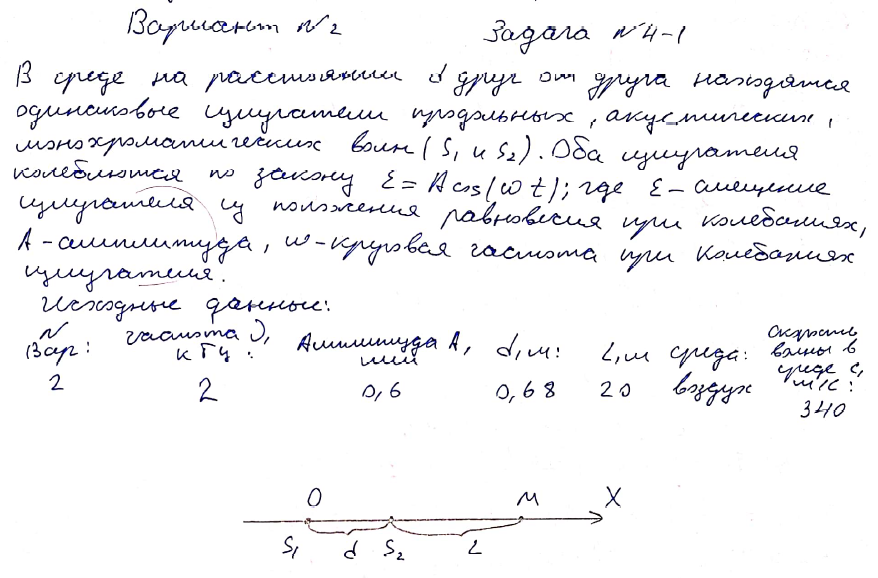 Вариант №2 Задача №4-1
В среде на расстоянии d друг от друга находятся
одинаковые излучатели продольных, акустических,
монохроматических волн (S1 и S2). Оба излучателя
колеблются по закону ξ = A cos(ωt); где ξ - смещение
излучателя из положения равновесия при колебаниях,
A - амплитуда, ω - круговая частота при колебаниях
излучателя.
Исходные данные:
№ Вар: частота ν, кГц: Амплитуда A, мм d, м: L, м среда: скорость волны в среде c, м/с:
2 2 0,6 0,68 20 воздух 340
O M X
S1 d S2 L